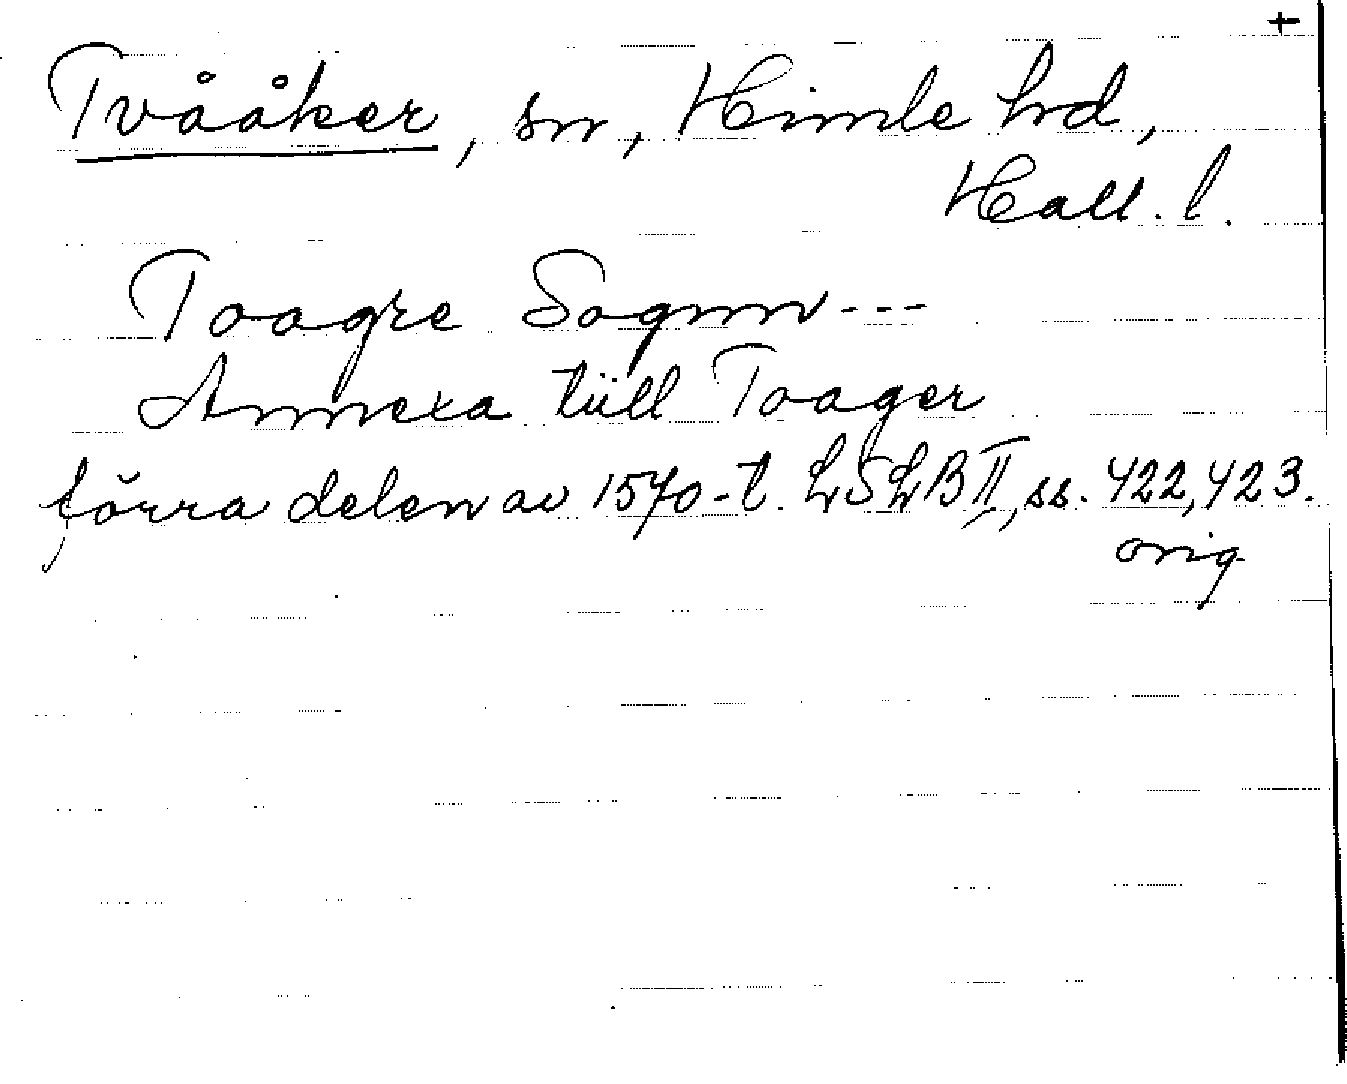 +
Tvååker, sn, Himle hd,
Hall. l.
Toagre Sognn ---
Annexa tüll Toager
förra delen av 1570-t. LSLB II, ss. 422, 423.
orig